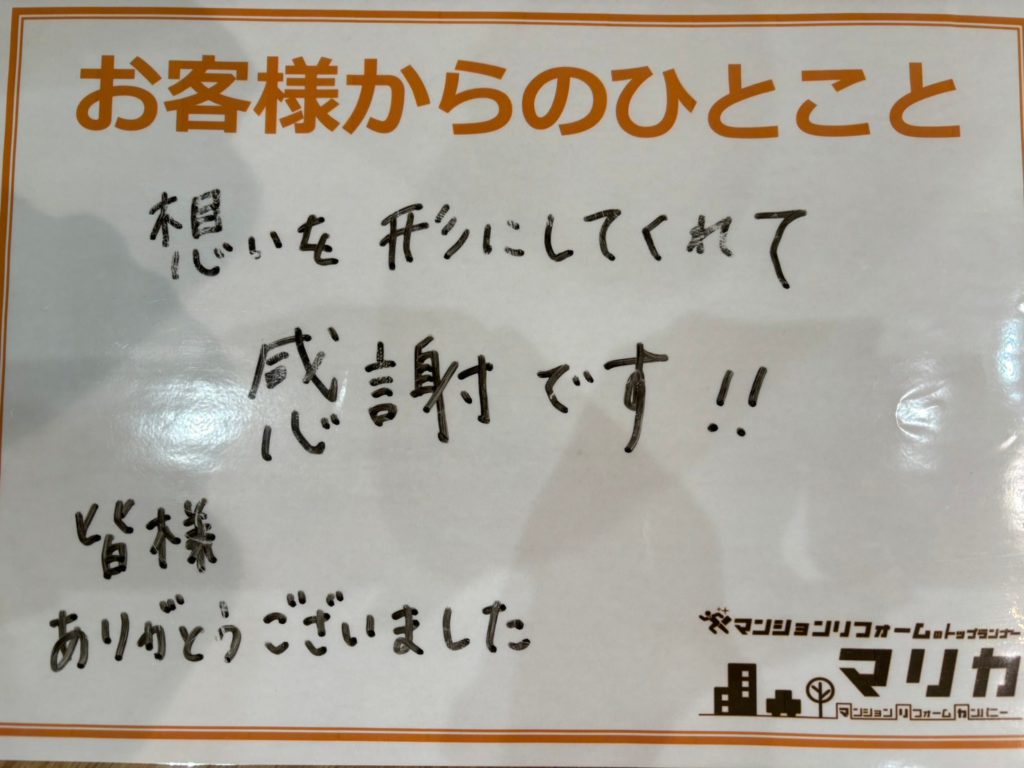 お客様からのひとこと
想いを 形にしてくれて
感謝です!!
皆様
ありがとうございました
マンションリフォームのトップランナー
マリカ
マンションリフォームカンパニー